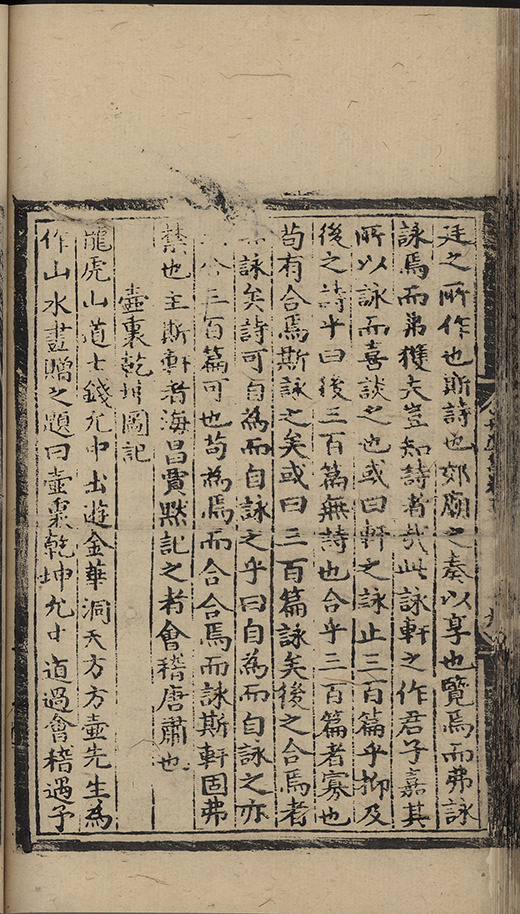 廷之所作也斯詩也郊廟之奏以享也覽焉而弗詠
詠焉而弟獲夫豈知詩者哉此詠軒之作君子嘉其
所以詠而喜談之也或曰軒之詠止三百篇乎抑及
後之詩乎曰後三百篇無詩也合乎三百篇者寡也
茍有合焉斯詠之矣或曰三百篇詠矣後之合焉者
詠矣詩可自為而自詠之乎曰自為而自詠之亦
合三百篇可也茍為焉而合合焉而詠斯軒固弗
禁也主斯軒者海昌賈黙記之者會稽唐肅也
壺裏乾坤圖記
龍虎山道士錢允中出遊金華洞天方方壺先生為
作山水畫贈之題曰壺裏乾坤允中道過會稽遇予